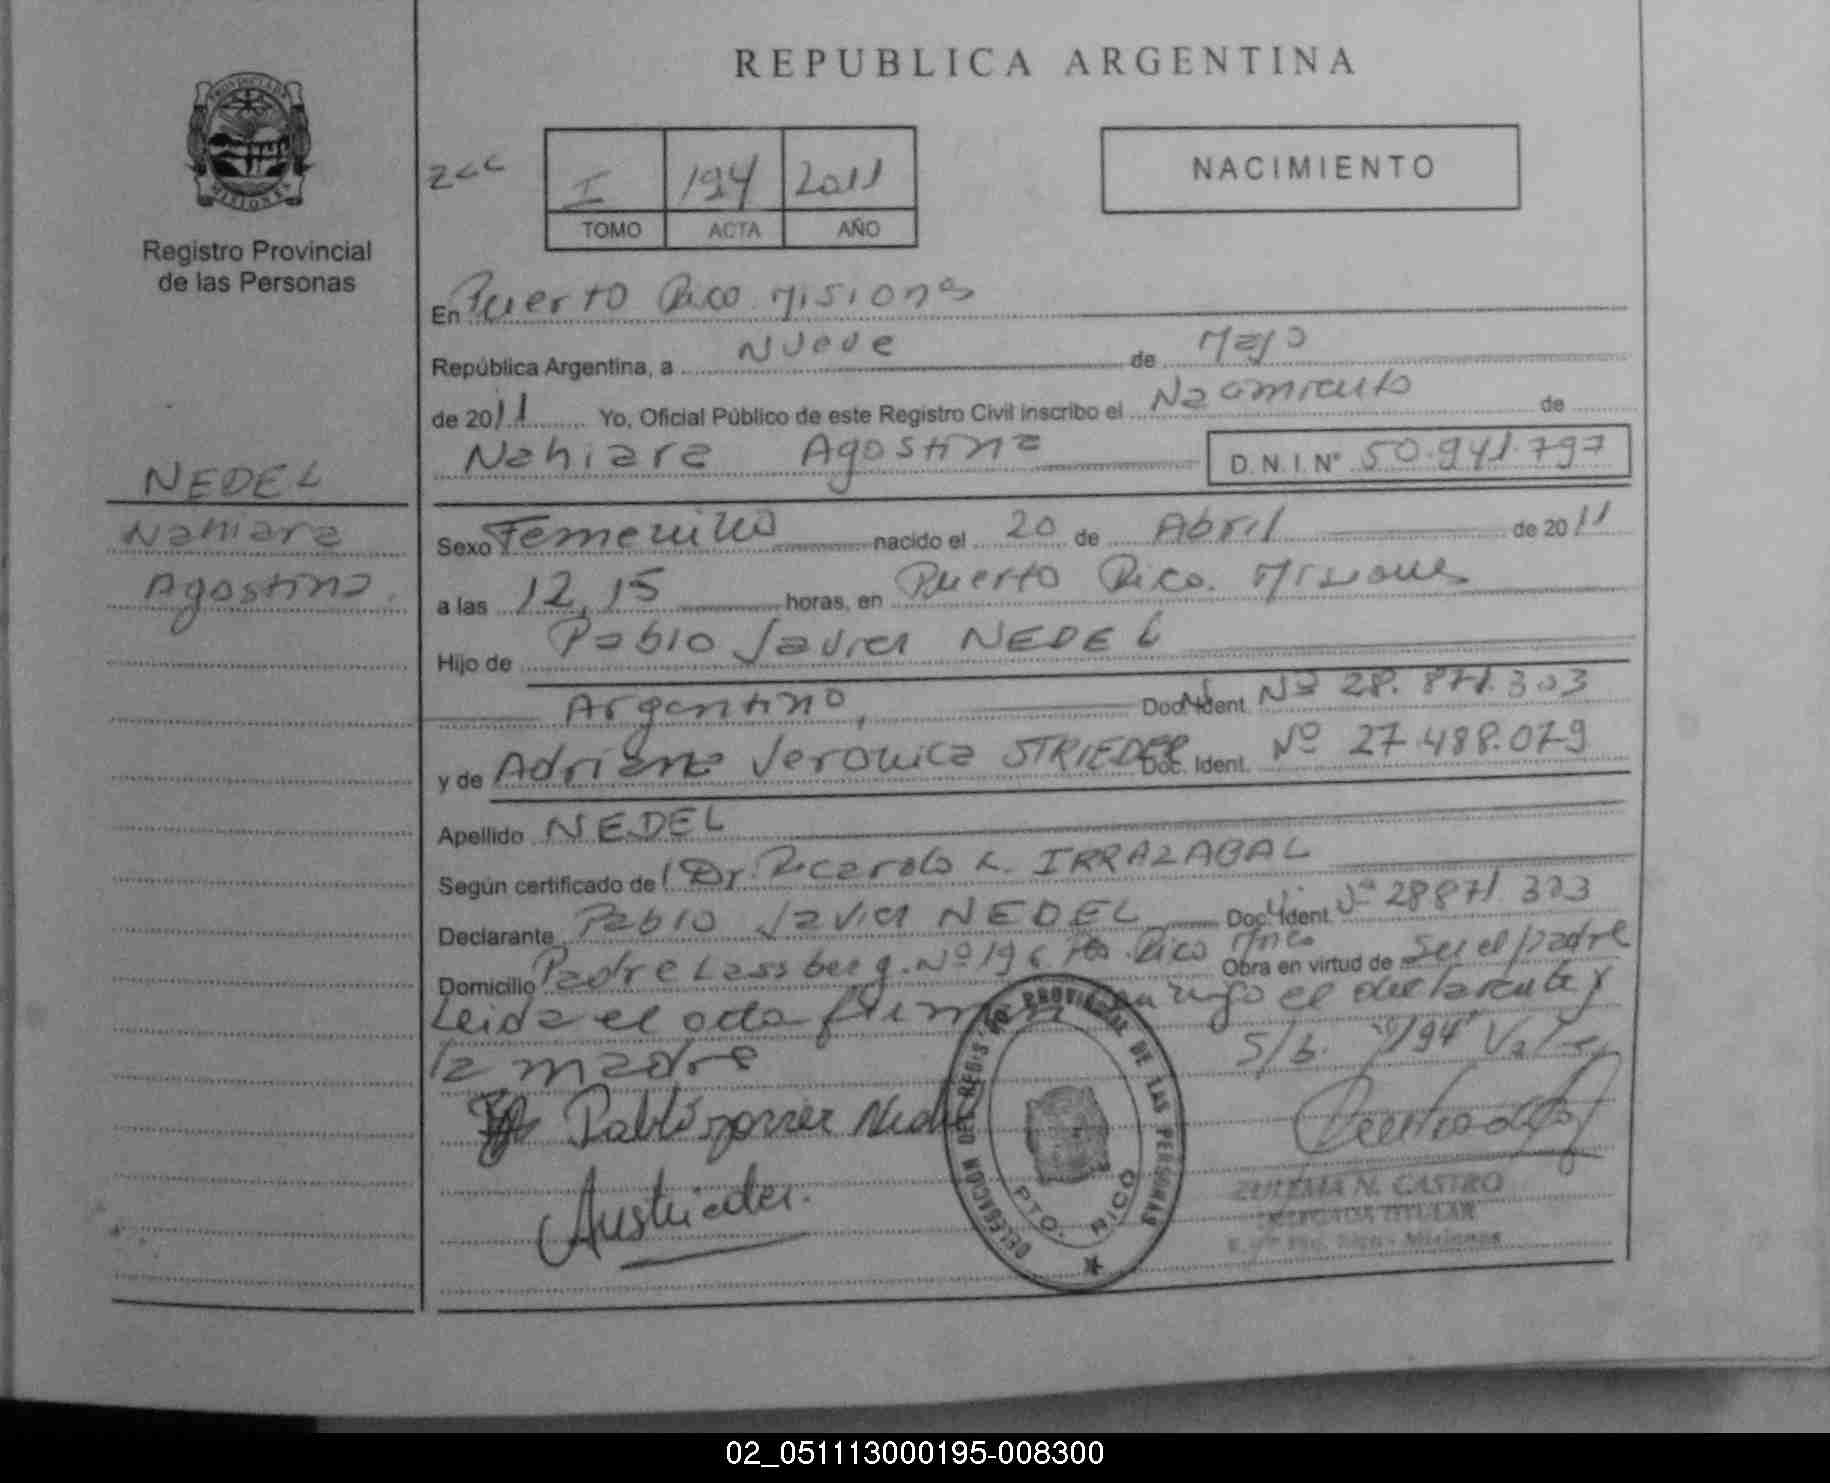 REPUBLICA ARGENTINA
PROVINCIA DE
MISIONES
Registro Provincial
de las Personas
I 194 2011
TOMO ACTA AÑO
NACIMIENTO
En Puerto Rico Misiones
República Argentina, a Nueve de Mayo
de 2011 Yo, Oficial Público de este Registro Civil inscribo el Nacimiento de
Nahiara Agostina D.N.I. N° 50.941.797
NEDEL
Nahiara
Agostina.
Sexo Femenino nacido el 20 de Abril de 2011
a las 12,15 horas, en Puerto Rico. Misiones
Hijo de Pablo Javier NEDEL
Argentino, Doc. Ident. Nº 28.871.303
y de Adriana Veronica STRIEDER Doc. Ident. Nº 27.488.079
Apellido NEDEL
Según certificado de Dr. Ricardo L. IRRAZABAL
Declarante Pablo Javier NEDEL Doc. Ident. Nº 28871.303
Domicilio Padre Lassberg. Nº 196 Pto. Rico Mnes Obra en virtud de Ser el padre
Leida el acta firman el declarante y
la madre S/b. 194 Vale
Pablo Javier Nedel
AVStrieder.
DELEGACION DEL REGISTRO PROVINCIAL DE LAS PERSONAS
PTO. RICO
ZULEMA N. CASTRO
DELEGADA TITULAR
Pto. Rico - Misiones
02_051113000195-008300